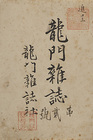 龍門雜誌
第貳號
龍門雜誌社